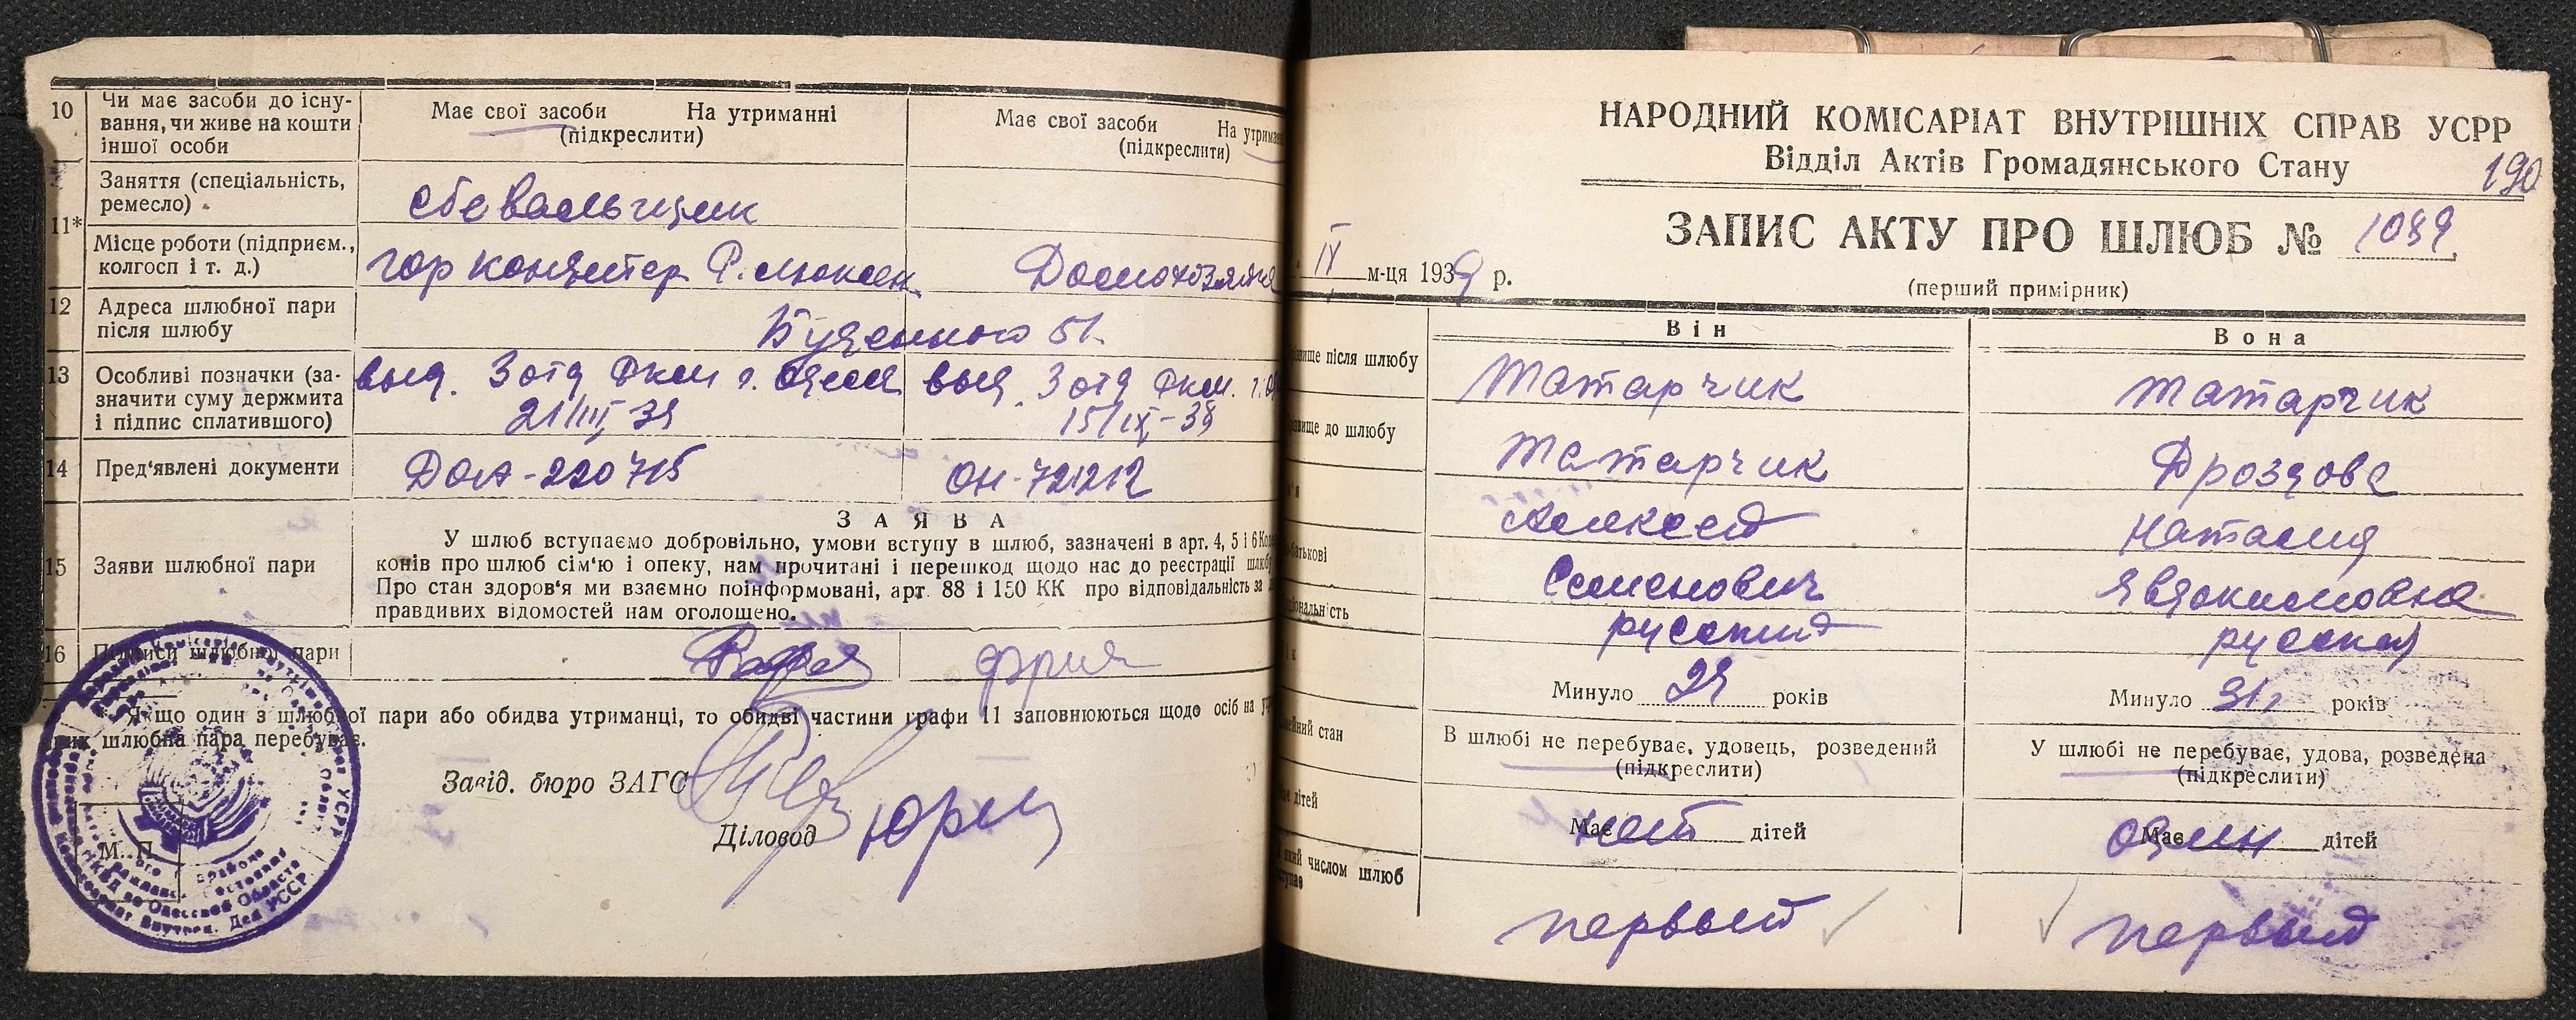 10
Чи має засоби до існу-
вання, чи живе на кошти
іншої особи
Має свої засоби На утриманні
(підкреслити)
Має свої засоби На утрима
(підкреслити)
11*
Заняття (спеціальність,
ремесло)
Місце роботи (підприєм.,
колгосп і т. д.)
гор
Домохозяйка
12
Адреса шлюбної пари
після шлюбу
Буденного 51.
13
Особливі позначки (за-
значити суму держмита
і підпис сплатившого)
выд. 3 отд РКМ г. Одесса
21/III, 39
выд. 3 отд РКМ. г.
15/IX-38
14
Пред'явлені документи
220715
721212
15
Заяви шлюбної пари
ЗАЯВА
У шлюб вступаємо добровільно, умови вступу в шлюб, зазначені в арт. 4, 5 і 6
конів про шлюб сім'ю і опеку, нам прочитані і перешкод щодо нас до реєстрації
Про стан здоров'я ми взаємно поінформовані, арт. 88 і 150 КК про відповідальність за
правдивих відомостей нам оголошено.
16
Підписи шлюбної пари
Якщо один з шлюбної пари або обидва утриманці, то обидві частини графи 11 заповнюються щодо осіб на
яких шлюбна пара перебуває.
Завід. бюро ЗАГС
Діловод
М. П.
НАРОДНИЙ КОМІСАРІАТ ВНУТРІШНІХ СПРАВ УСРР
Відділ Актів Громадянського Стану
190
ЗАПИС АКТУ ПРО ШЛЮБ № 1089
(перший примірник)
IX м-ця 1939 р.
Він
Вона
вище після шлюбу
Татарчик
Татарчик
вище до шлюбу
Татарчик
Дроздова
Алексей
Наталия
батькові
Семенович
Явдокимовна
русский
русская
Минуло 29 років
Минуло 31 років
стан
В шлюбі не перебуває, удовець, розведений
(підкреслити)
У шлюбі не перебуває, удова, розведена
(підкреслити)
дітей
Має нет дітей
Має один дітей
числом шлюб
первый
первый